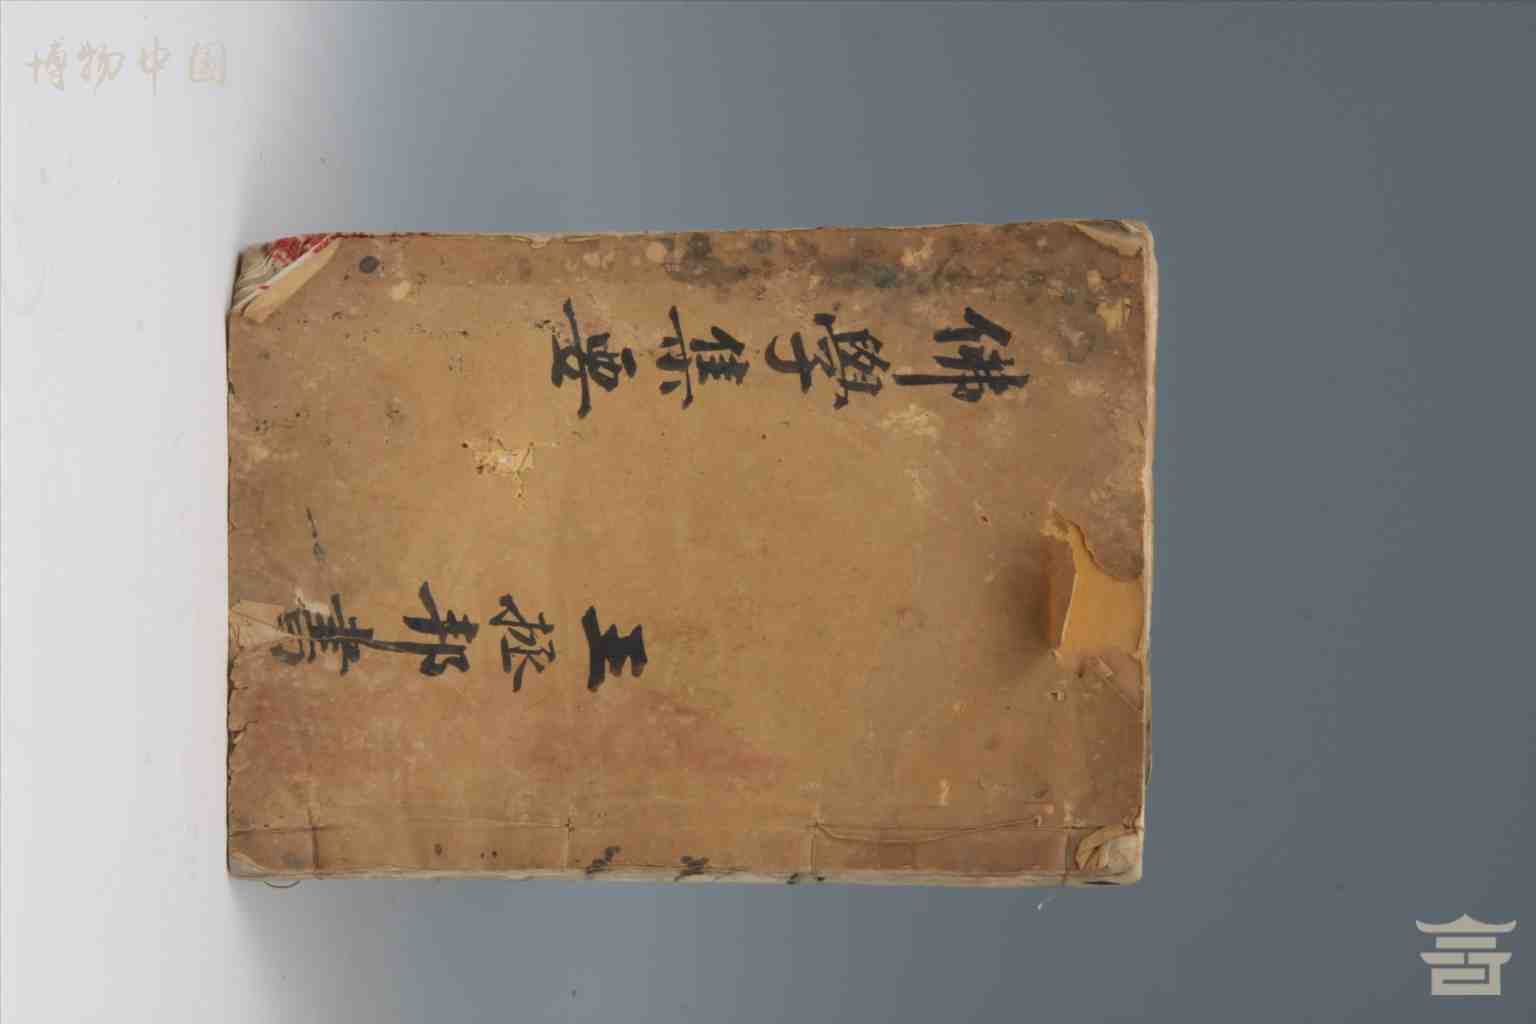 博物中国
佛學集要
王拯邦書